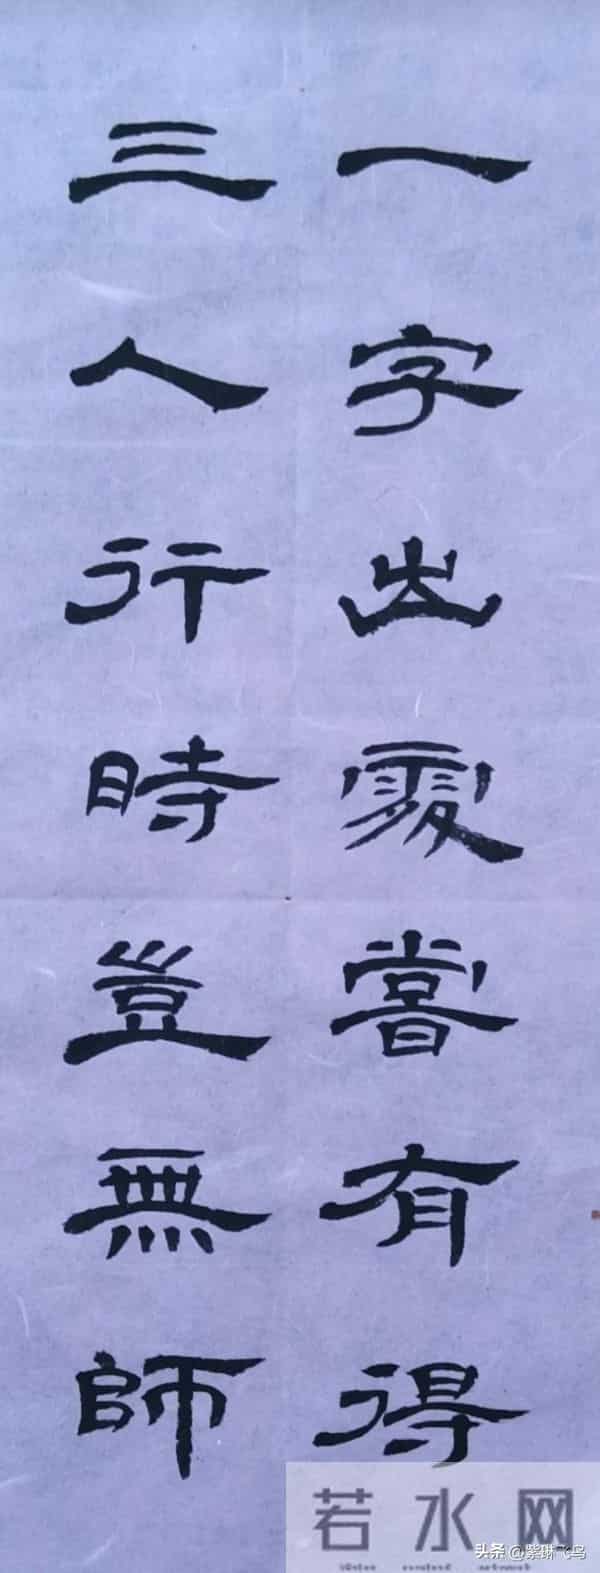 一字出處嘗有得
三人行時豈無師
若水网
头条@紫琳飞鸟